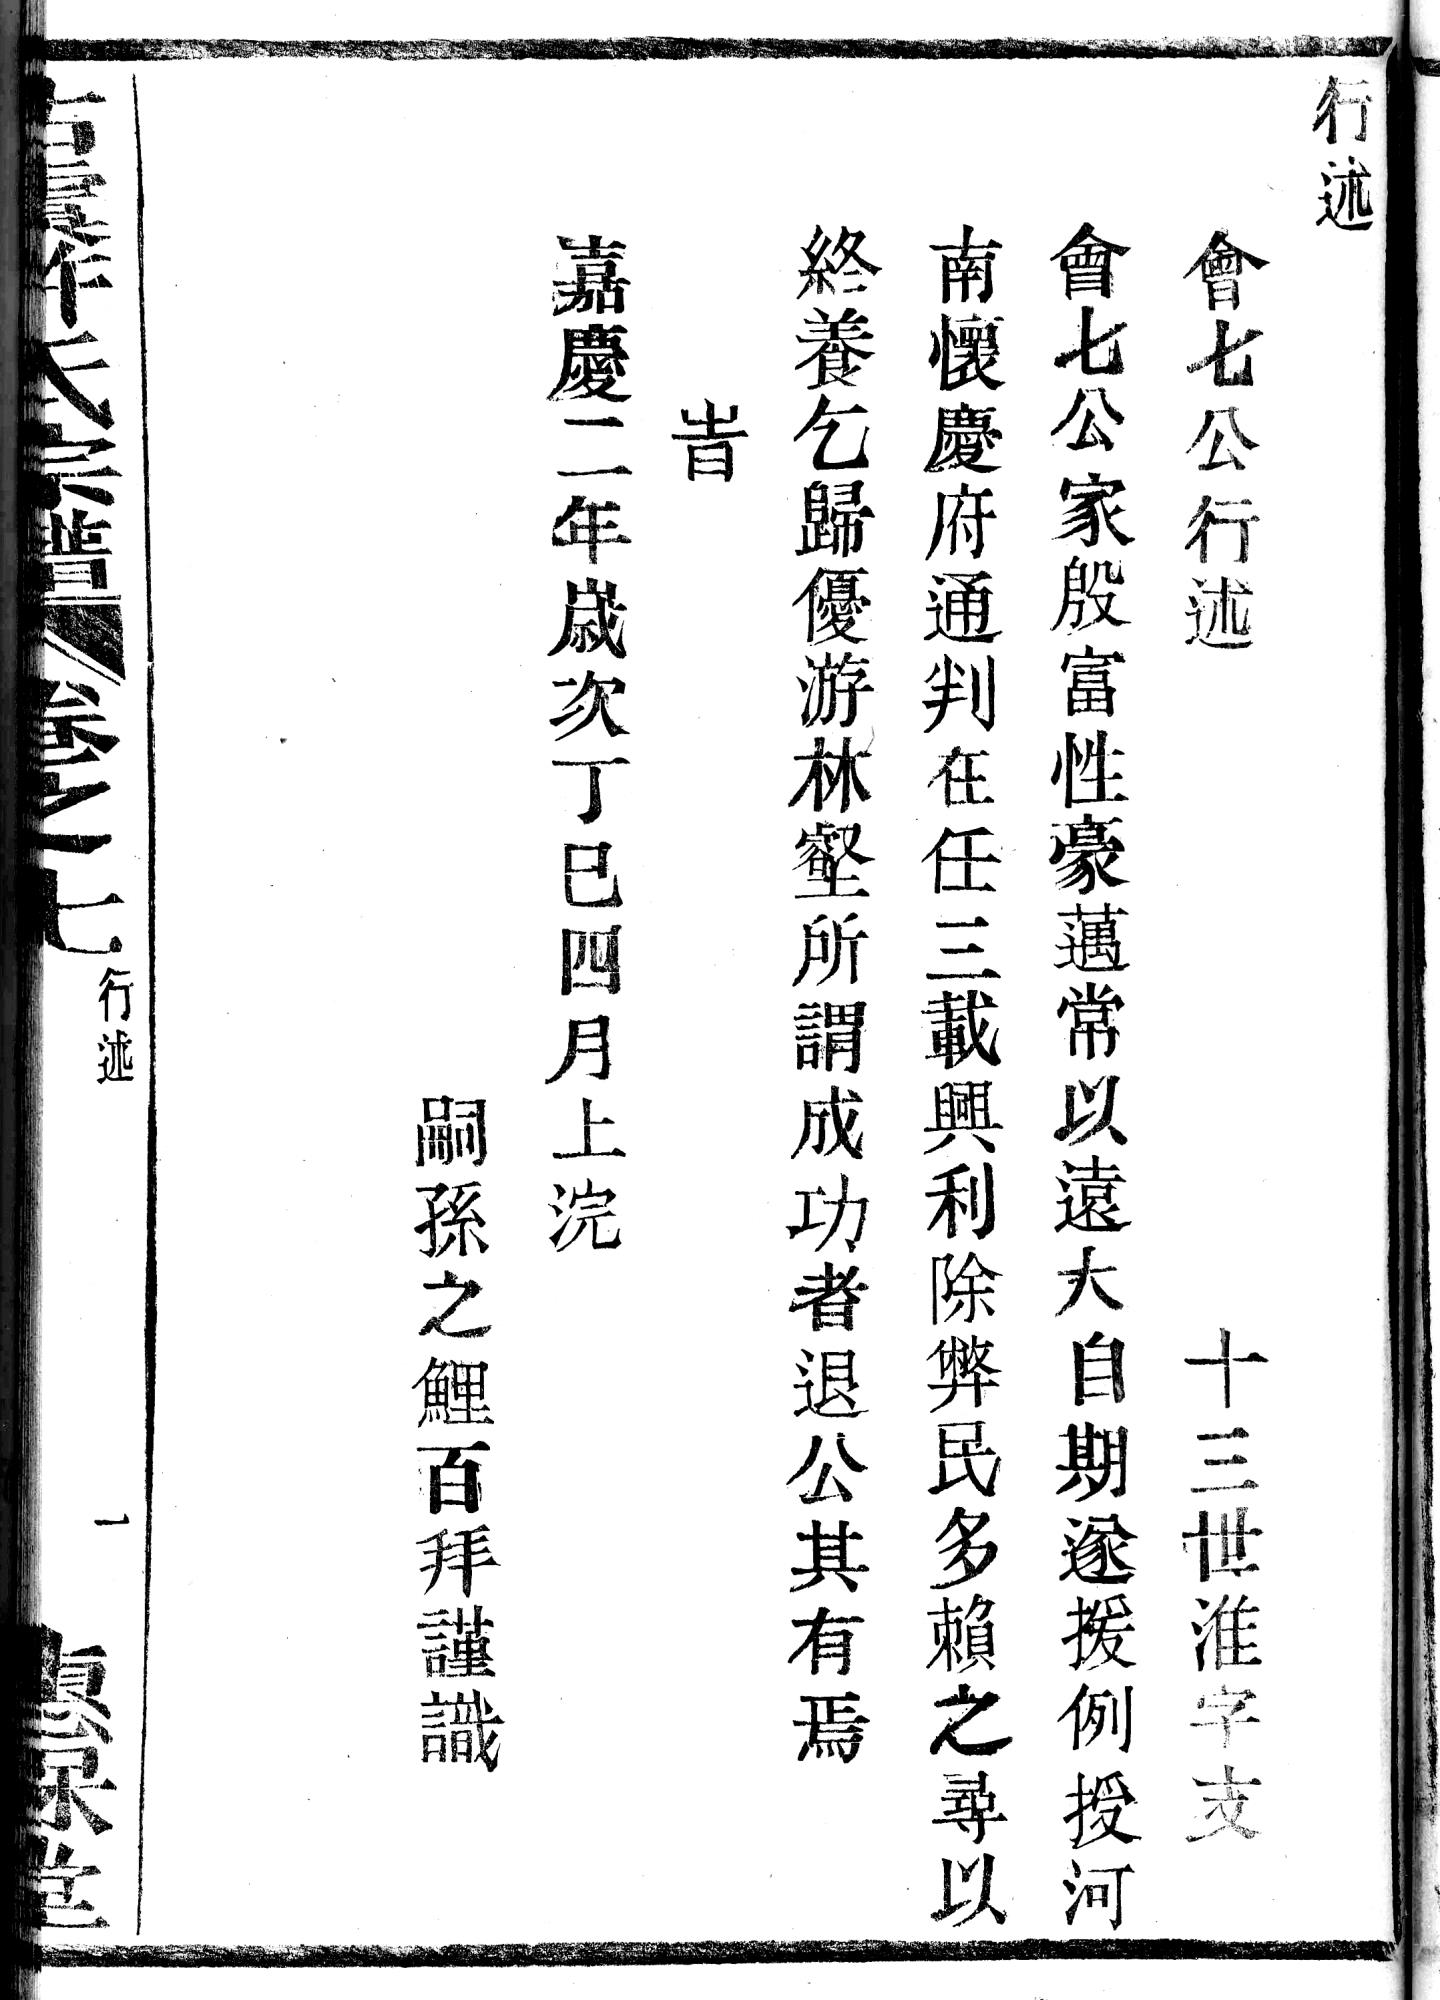 行述
會七公行述　十三世淮字支
會七公家殷富性豪邁常以遠大自期遂援例授河
南懷慶府通判在任三載興利除弊民多賴之尋以
終養乞歸優游林壑所謂成功者退公其有焉
旹
嘉慶二年歲次丁巳四月上浣
嗣孫之鯉百拜謹識
氏宗譜 卷之七 行述 一 堂